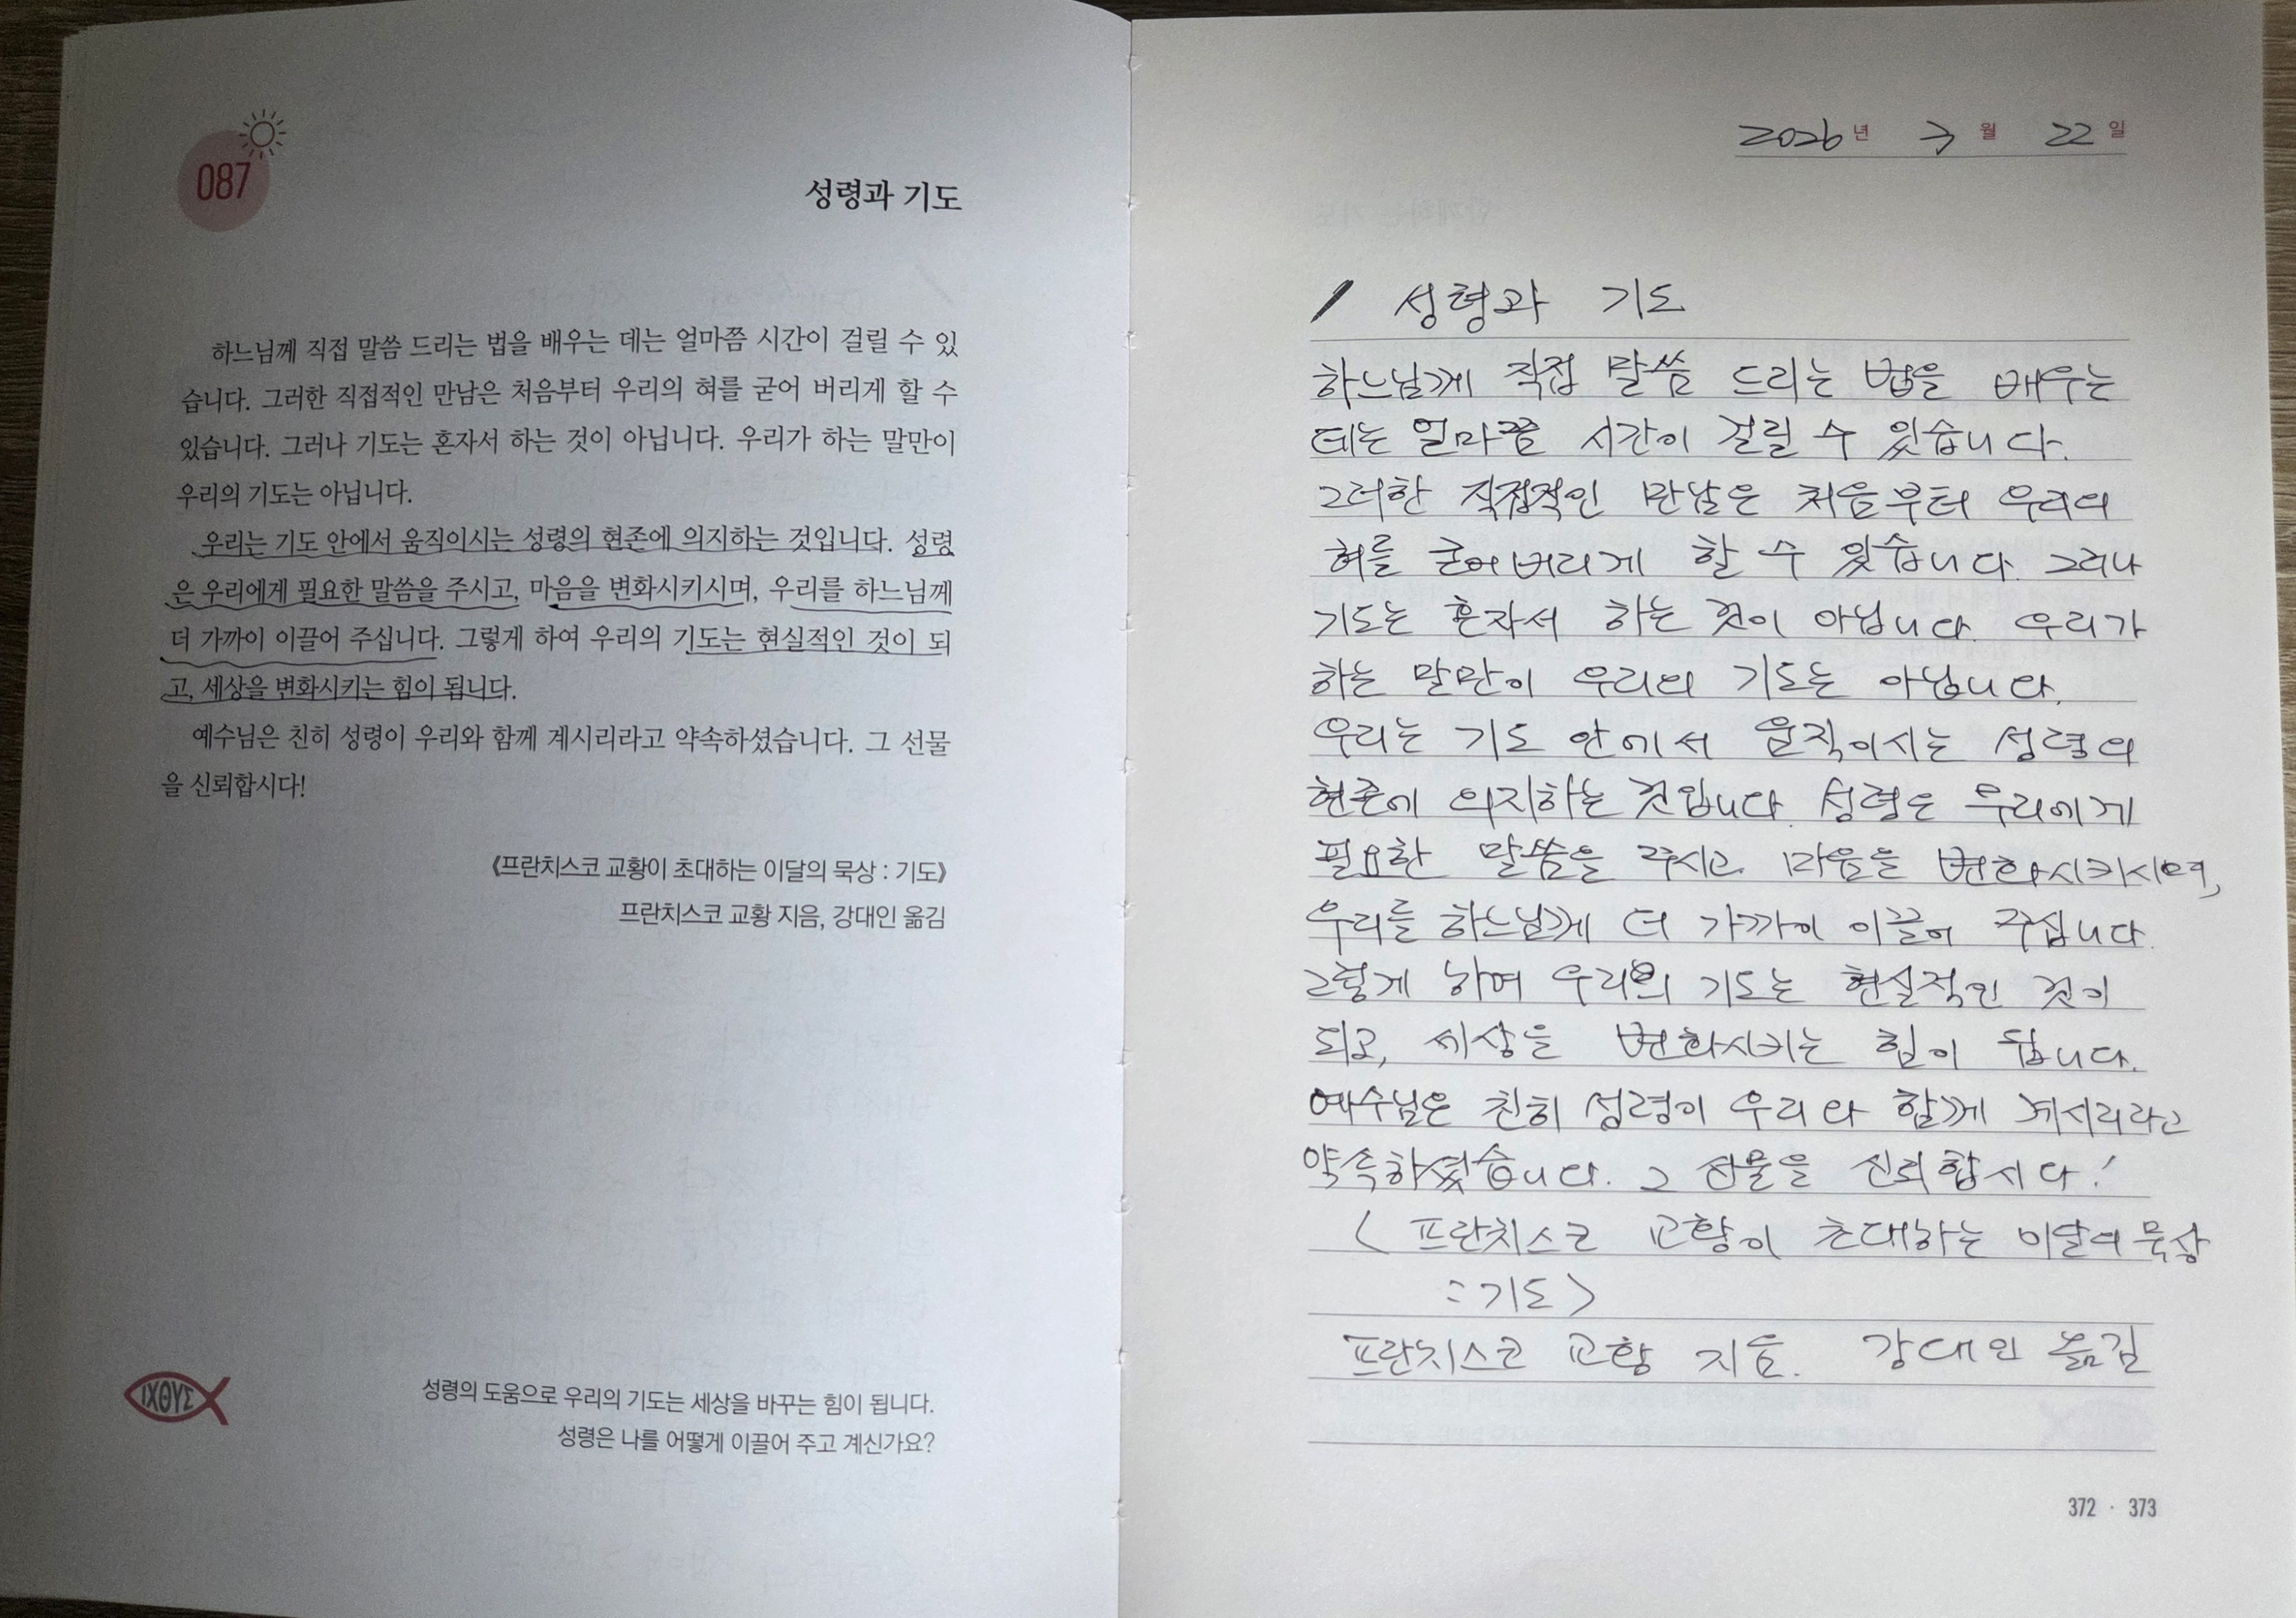 087
성령과 기도
하느님께 직접 말씀 드리는 법을 배우는 데는 얼마쯤 시간이 걸릴 수 있
습니다. 그러한 직접적인 만남은 처음부터 우리의 혀를 굳어 버리게 할 수
있습니다. 그러나 기도는 혼자서 하는 것이 아닙니다. 우리가 하는 말만이
우리의 기도는 아닙니다.
우리는 기도 안에서 움직이시는 성령의 현존에 의지하는 것입니다. 성령
은 우리에게 필요한 말씀을 주시고, 마음을 변화시키시며, 우리를 하느님께
더 가까이 이끌어 주십니다. 그렇게 하여 우리의 기도는 현실적인 것이 되
고, 세상을 변화시키는 힘이 됩니다.
예수님은 친히 성령이 우리와 함께 계시리라고 약속하셨습니다. 그 선물
을 신뢰합시다!
《프란치스코 교황이 초대하는 이달의 묵상 : 기도》
프란치스코 교황 지음, 강대인 옮김
ΙΧΘΥΣ
성령의 도움으로 우리의 기도는 세상을 바꾸는 힘이 됩니다.
성령은 나를 어떻게 이끌어 주고 계신가요?
2026년 3월 22일
/ 성령과 기도
하느님께 직접 말씀 드리는 법을 배우는
데는 얼마쯤 시간이 걸릴 수 있습니다.
그러한 직접적인 만남은 처음부터 우리의
혀를 굳어버리게 할 수 있습니다. 그러나
기도는 혼자서 하는 것이 아닙니다. 우리가
하는 말만이 우리의 기도는 아닙니다.
우리는 기도 안에서 움직이시는 성령의
현존에 의지하는 것입니다. 성령은 우리에게
필요한 말씀을 주시고 마음을 변화시키시며,
우리를 하느님께 더 가까이 이끌어 주십니다.
그렇게 하여 우리의 기도는 현실적인 것이
되고, 세상을 변화시키는 힘이 됩니다.
예수님은 친히 성령이 우리와 함께 계시리라고
약속하셨습니다. 그 선물을 신뢰합시다!
< 프란치스코 교황이 초대하는 이달의 묵상
: 기도 >
프란치스코 교황 지음. 강대인 옮김
372 · 373